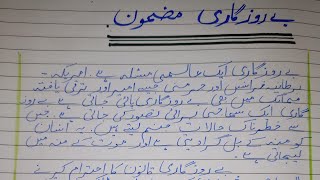 بے روزگاری مضمون
بے روزگاری ایک عالمی مسئلہ ہے۔ امریکہ،
برطانیہ فرانس اور جرمنی جیسے امیر اور ترقی یافتہ
ممالک میں بھی بے روزگاری پائی جاتی ہے بے روز
گاری ایک سماجی برائی تصور کی جاتی ہے۔ جس
سے خطرناک حالات جنم لیتے ہیں۔ یہ انسان
کو منہ کے بل گرا دیتی ہے اور موت کے منہ میں
لیجاتی ہے۔
بے روزگاری قانون کا احترام کرنے